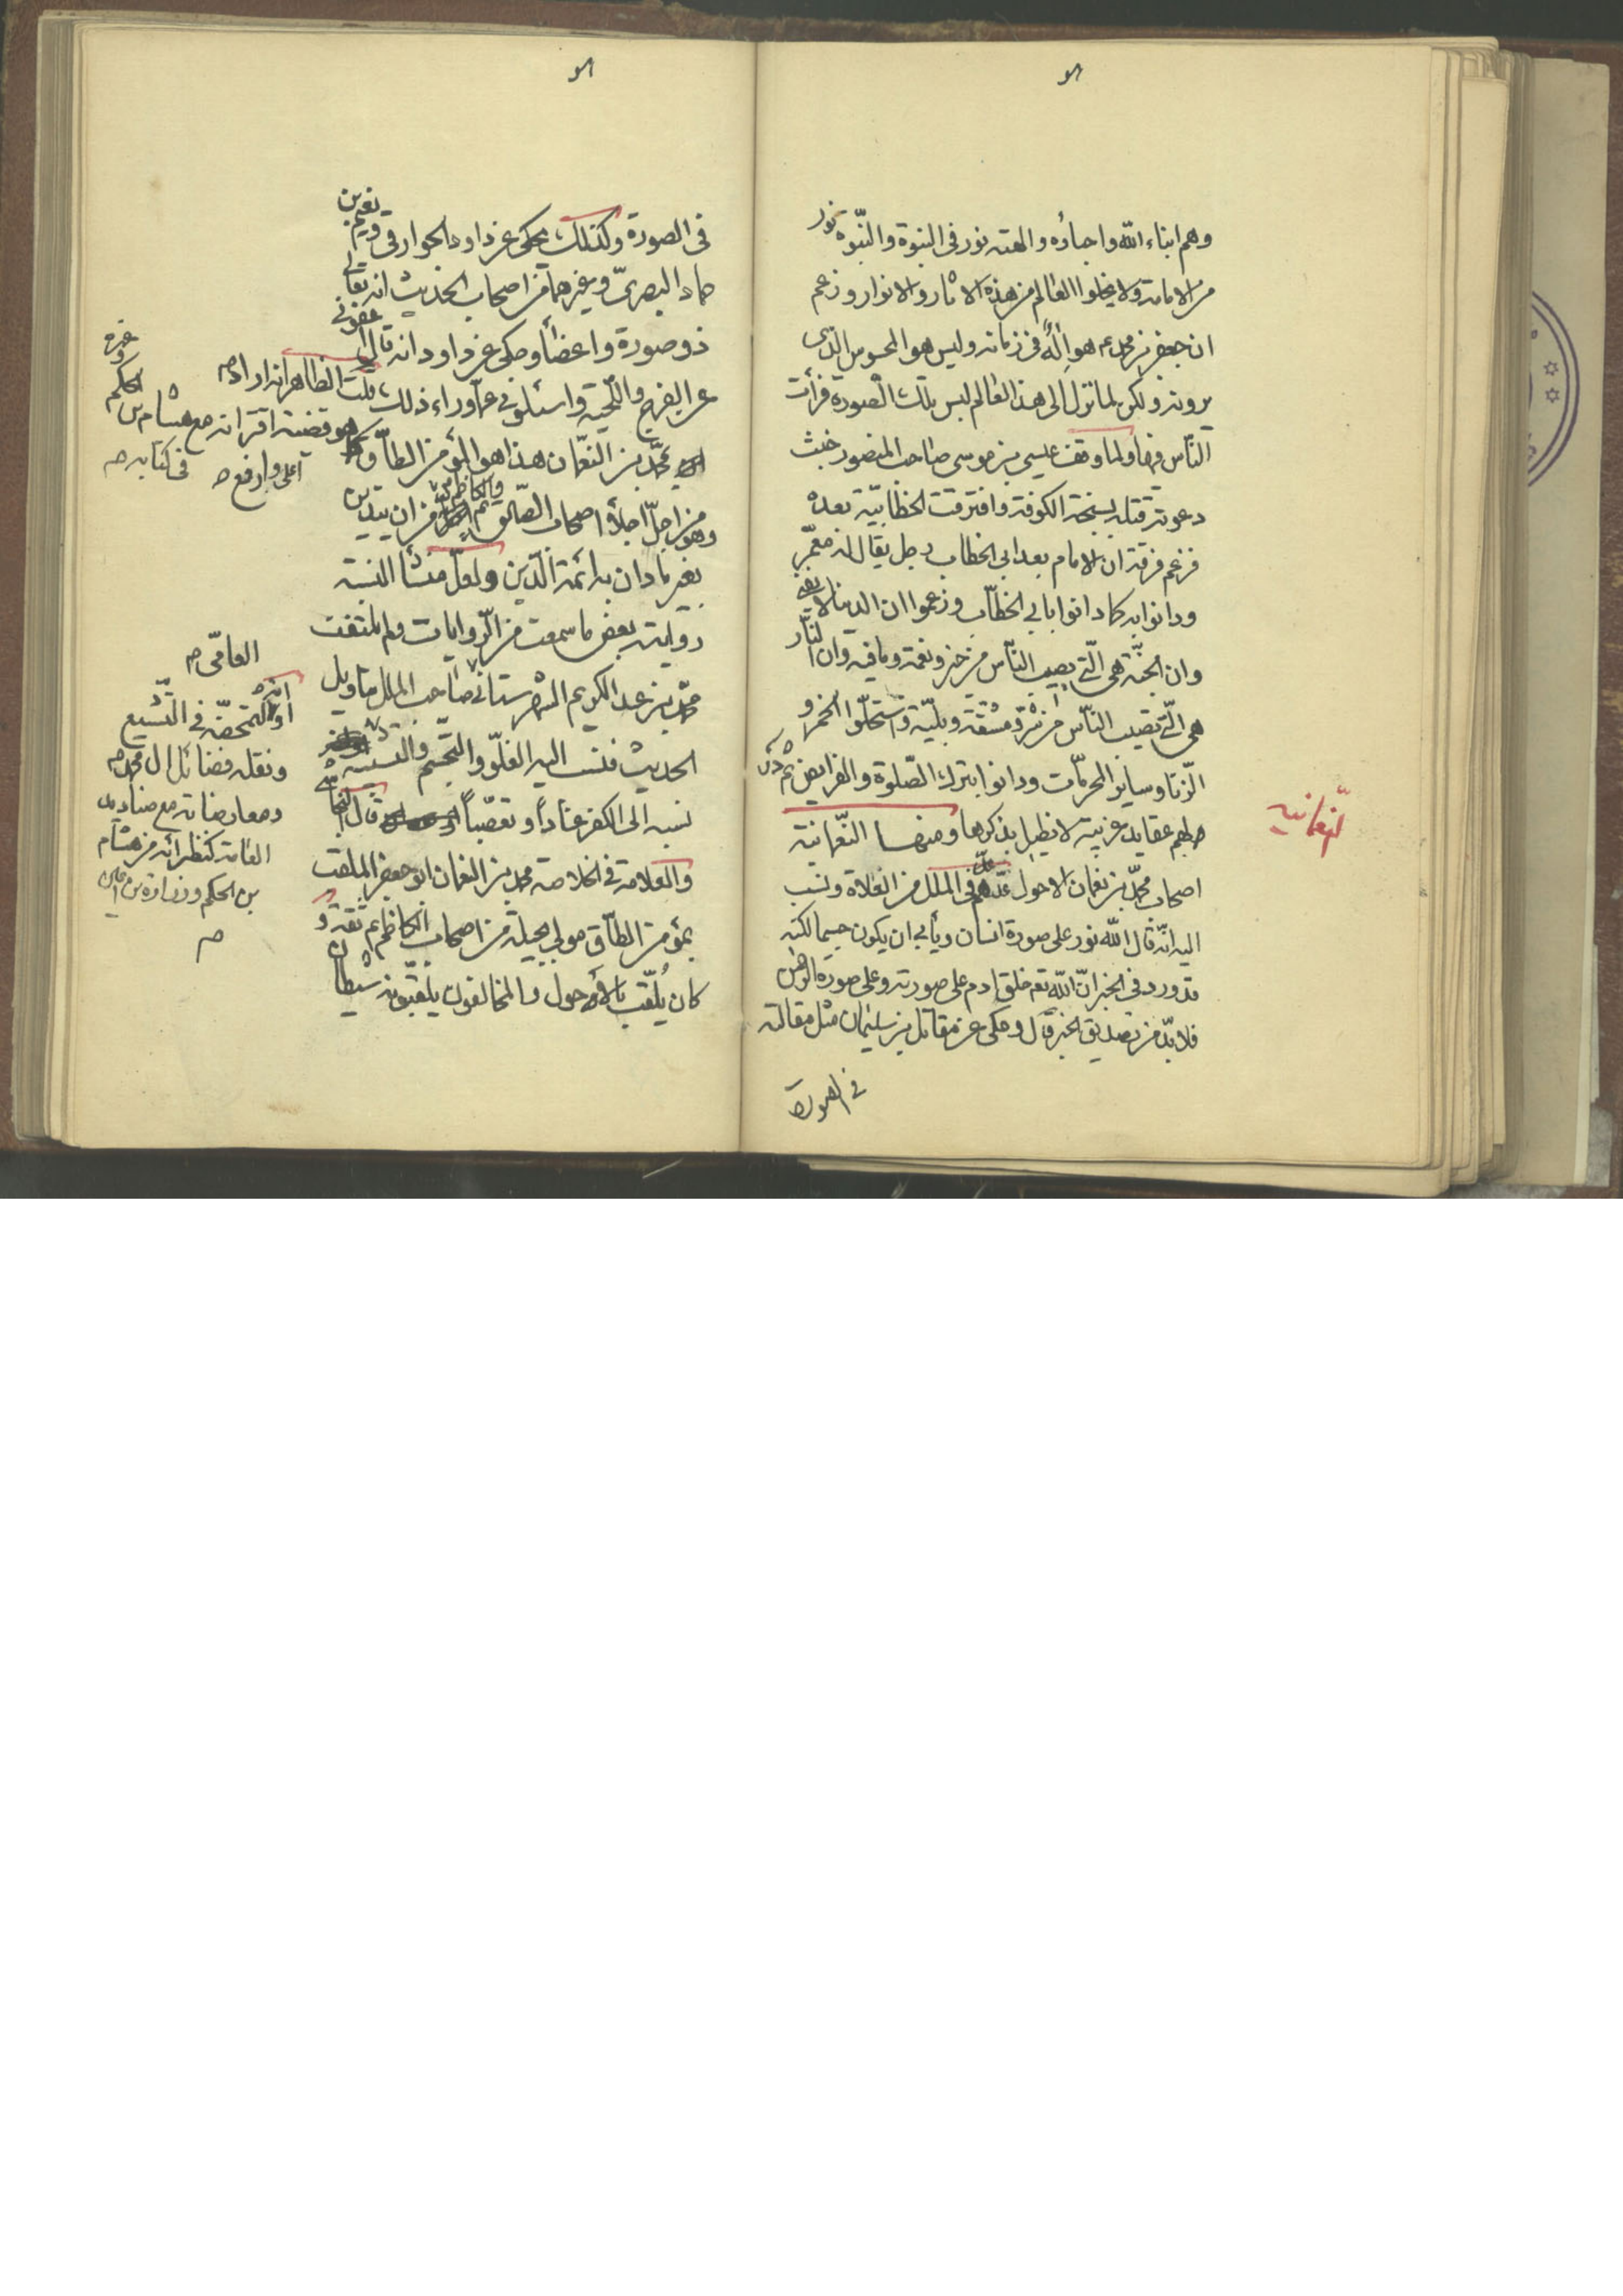 وهم ابناء الله واحباؤه والهته نور في النبوة والنبّوه نور
من الامامة ولا يخلوا العالم من هذه الاثار والانوار وزعم
ان جعفر بن محمد ع هو الٰه في زمانه وليس هو المحسوس الذي
يرونه ولكن لما نزل الى هذا العالم لبس تلك الصورة فرأت
النّاس فيها ولما وقف عيسى بن موسى صاحب المنصور خبث
دعوته قتله بسبخة الكوفة وافترقت الخطّابيّة بعده
فزعم فرقة ان الامام بعد ابي الخطاب رجل يقال له معمّر
ودانوا به كما دانوا بابي الخطّاب وزعموا ان الدنيا لا يفنى
وان الجنّة هي الّتي يصيب النّاس من خير ونعمة وعافية وان النّار
هي الّتي تصيب النّاس من شرّ ومشقّة وبليّة واستحلّوا الخمر و
الزنا وساير المحرمّات ودانوا بترك الصّلوة والفرايض ثم
لهم عقايد غريبة لا نطيل بذكرها ومنها النّعمانية
النّعمانيه
اصحاب محمّد بن نعمان الاحول عدّهم في الملل من الغلاة ونسب
اليه انّه قال الله نور على صورة انسان ويأبى ان يكون جسما لكنه
قد ورد في الخبر انّ الله تعم خلق ادم على صورته وعلى صورة الرحمن
فلا بدّ من تصديق الخبر قال وحكى عن مقاتل بن سليمان مثل مقالته
في الصورة
في الصورة وكذلك يحكى عن داود الجوارفي ونعيم بن
حماد البصريّ وغيرهما من اصحاب الحديث انه تعالى
ذو صورة واعضاء وحكى عن داود انه قال اعفوني
عن الفرج واللّحية واسئلوني عمّا وراء ذلك، قلت الظاهر انه اراد
محمّد بن النعّمان هذا هو المؤمن الطاّق
هو قضية اقرانه مع هشام بن الحكم وغيره
اعلى وارفع
في كتابه
وهو من اجلّ اجلاّء اصحاب الصّادق والكاظم من ان يتدين
بغير ما دان به ائمة الّدين ولعلّ منشأ النسبة
رواية بعض ما سمعت من الّروايات ولم يلتفت
محمّد بن عبد الكريم الشهرستاني صاحب الملل بتاويل
الحديث فنسب اليه الغلّو والتجّسم والتشبيه
نسبه الى الكفر عناداً وتعصّباً قال النجاشي
والعلامة في الخلاصة محمد بن النعمان ابو جعفر الملقب
بمؤمن الطاّق مولى بجيلة من اصحاب الكاظم ع ثقة و
كان يُلقّب بالأحول والمخالفون يلقبّونه شيطان
العامّى
او لتمحضّه في التّشيع
ونقله فضائل ال محمد
ومعارضاته مع صناديد
العامة كنظرائه من هشام
بن الحكم وزرارة بن اعين